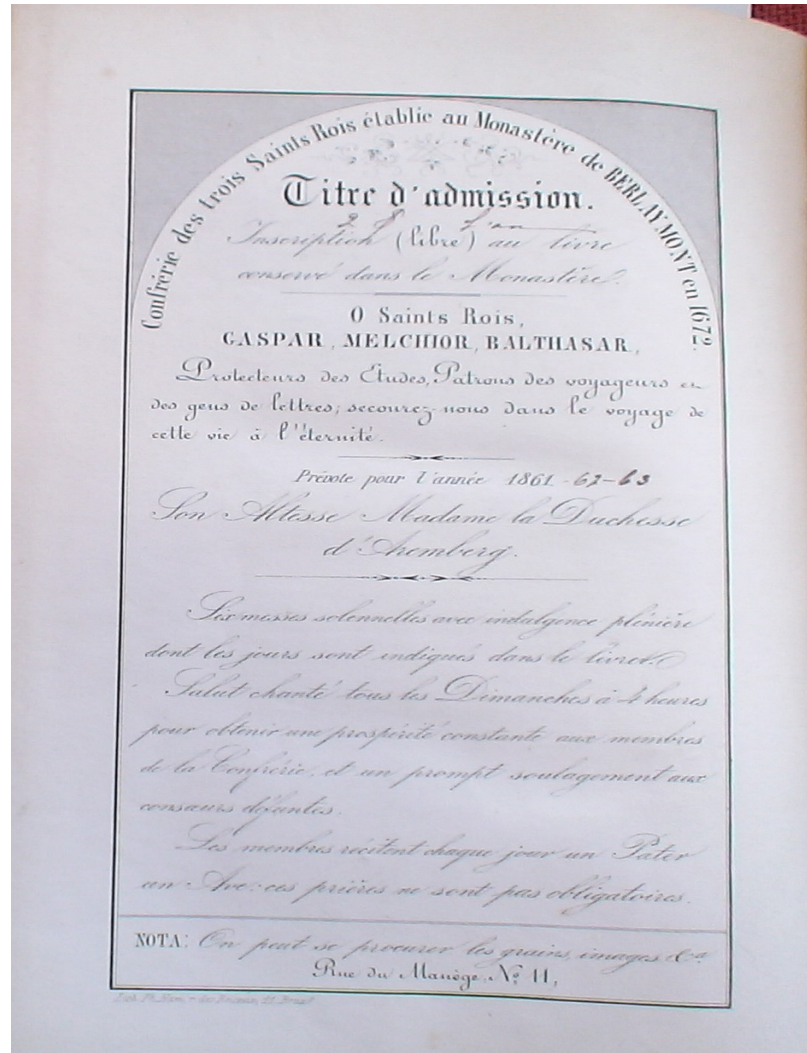 Confrérie des trois Saints Rois établie au Monastère de BERLAYMONT en 1672.
Titre d'admission.
Inscription (libre) au livre
conservé dans le Monastère.
O Saints Rois,
GASPAR, MELCHIOR, BALTHASAR,
Protecteurs des Études, Patrons des voyageurs et
des gens de lettres; secourez-nous dans le voyage de
cette vie à l'éternité.
Prévote pour l'année 1861-62-63
Son Altesse Madame la Duchesse
d'Aremberg.
Six messes solennelles avec indulgence plénière
dont les jours sont indiqués dans le livret.
Salut chanté tous les Dimanches à 4 heures
pour obtenir une prospérité constante aux membres
de la Confrérie, et un prompt soulagement aux
consœurs défuntes.
Les membres récitent chaque jour un Pater
un Ave: ces prières ne sont pas obligatoires.
NOTA: On peut se procurer les grains, images &a
Rue du Manège, No 11,